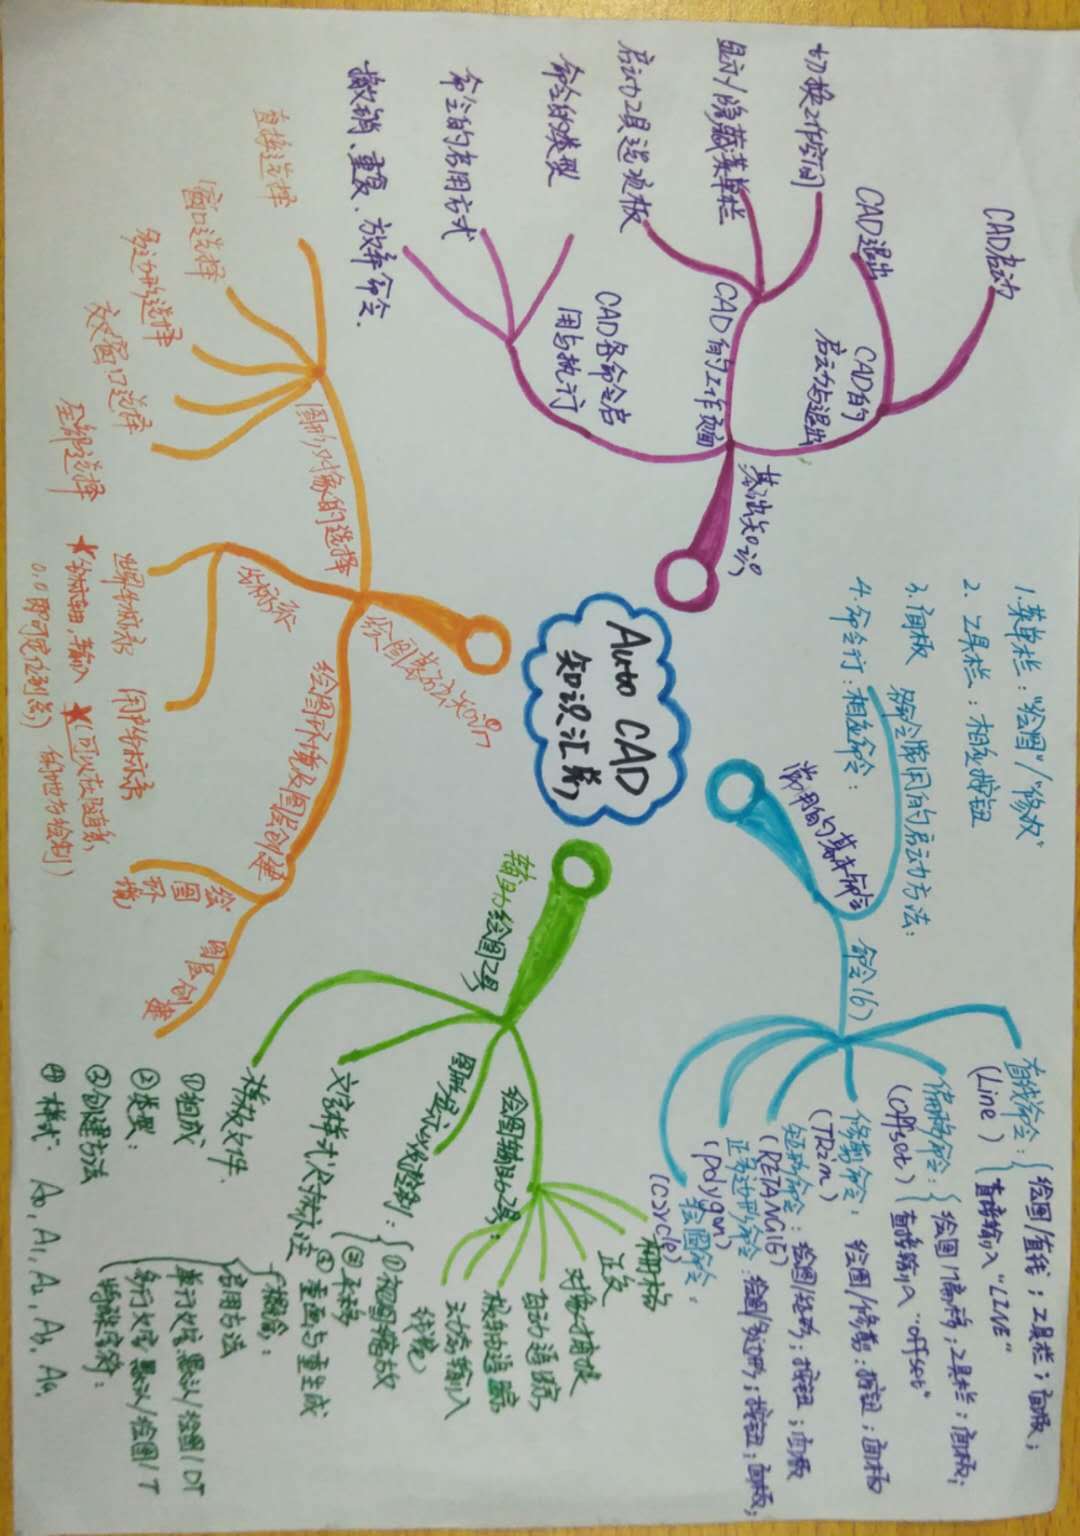 Auto CAD
知识汇总
基础知识
CAD的
启动与退出
CAD启动
CAD退出
CAD的工作页面
切换工作空间
显示/隐藏菜单栏
启动工具选项板
CAD各命令启
用与执行
命令的类型
命令的启用方式
撤销、重复、放弃命令.
常用的基本命令
各命令常用的启动方法:
1.菜单栏:"绘图"/"修改"
2.工具栏:相应按钮
3.面板
4.命令行:相应命令:
命令(6)
直线命令:
(Line)
绘图/直线;工具栏;面板;
直接输入"LINE"
偏移命令:
(offset)
绘图/偏移;工具栏;面板;
直接输入"offset"
修剪命令:
(TRim)
绘图/修剪;按钮;面板
矩形命令:绘图/矩形;按钮;面板
(RETANGlE)
正多边形命令:绘图/多边形;按钮;面板;
(polygon)
绘圆命令:
(coycle)
绘图基础知识
图形对象的选择
直接选择
窗口选择
多边形选择
交叉窗口选择
全部选择
坐标系
世界坐标系
用户坐标系
绘图环境及图层创建
绘
图
环
境
图层创建
辅助绘图工具
绘图辅助工具:
栅格
正交
对象捕捉
自动追踪
极轴追踪
动态输入
线宽
图形显示控制:
①视图缩放
②平移
③重画与重生成
文字样式及标注
概念:
启用方法
单行文字 默认/绘图/DT
多行文字 默认/绘图/T
特殊字符:
样板文件.
①组成
②类型:
③创建方法
④样式: A0, A1, A2, A3, A4.